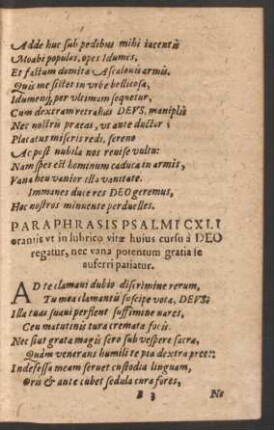 Adde huc sub pedibus mihi iacentũ
Moabi populos, opes Idumes,
Et fastum domita Ascalonis armis.
Quis me sistet in vrbe bellicosa,
Idumenq; per vltimam sequetur,
Cum dextram retrahas DEVS, maniplis
Nec nostris praeas, vt ante ductor;
Placatur miseris redi, sereno
Ac post nubila nos reuise vultu:
Nam spes est hominum caduca in armis,
Vana heu vanior illa vanitate.
Immanes duce res DEO geremus,
Hoc nostros minuente perduelles.
PARAPHRASIS PSALMI CXLI
orantis vt in lubrico vitæ huius cursu à DEO
regatur, nec vana potentum gratia se
auferri patiatur.
AD te clamani dubio discrimine rerum,
Tu mea clamantis suscipe vota, DEVS:
Illa tuas suaui perfient suffimine nares,
Ceu matutinis tura cremata focis.
Nec sint grata magis sero sub vespere sacra,
Quàm venerans humili te pia dextra prece:
Indefessa meam seruet custodia linguam,
Oris & ante cubet sedula cura fores,
B 3 Ne